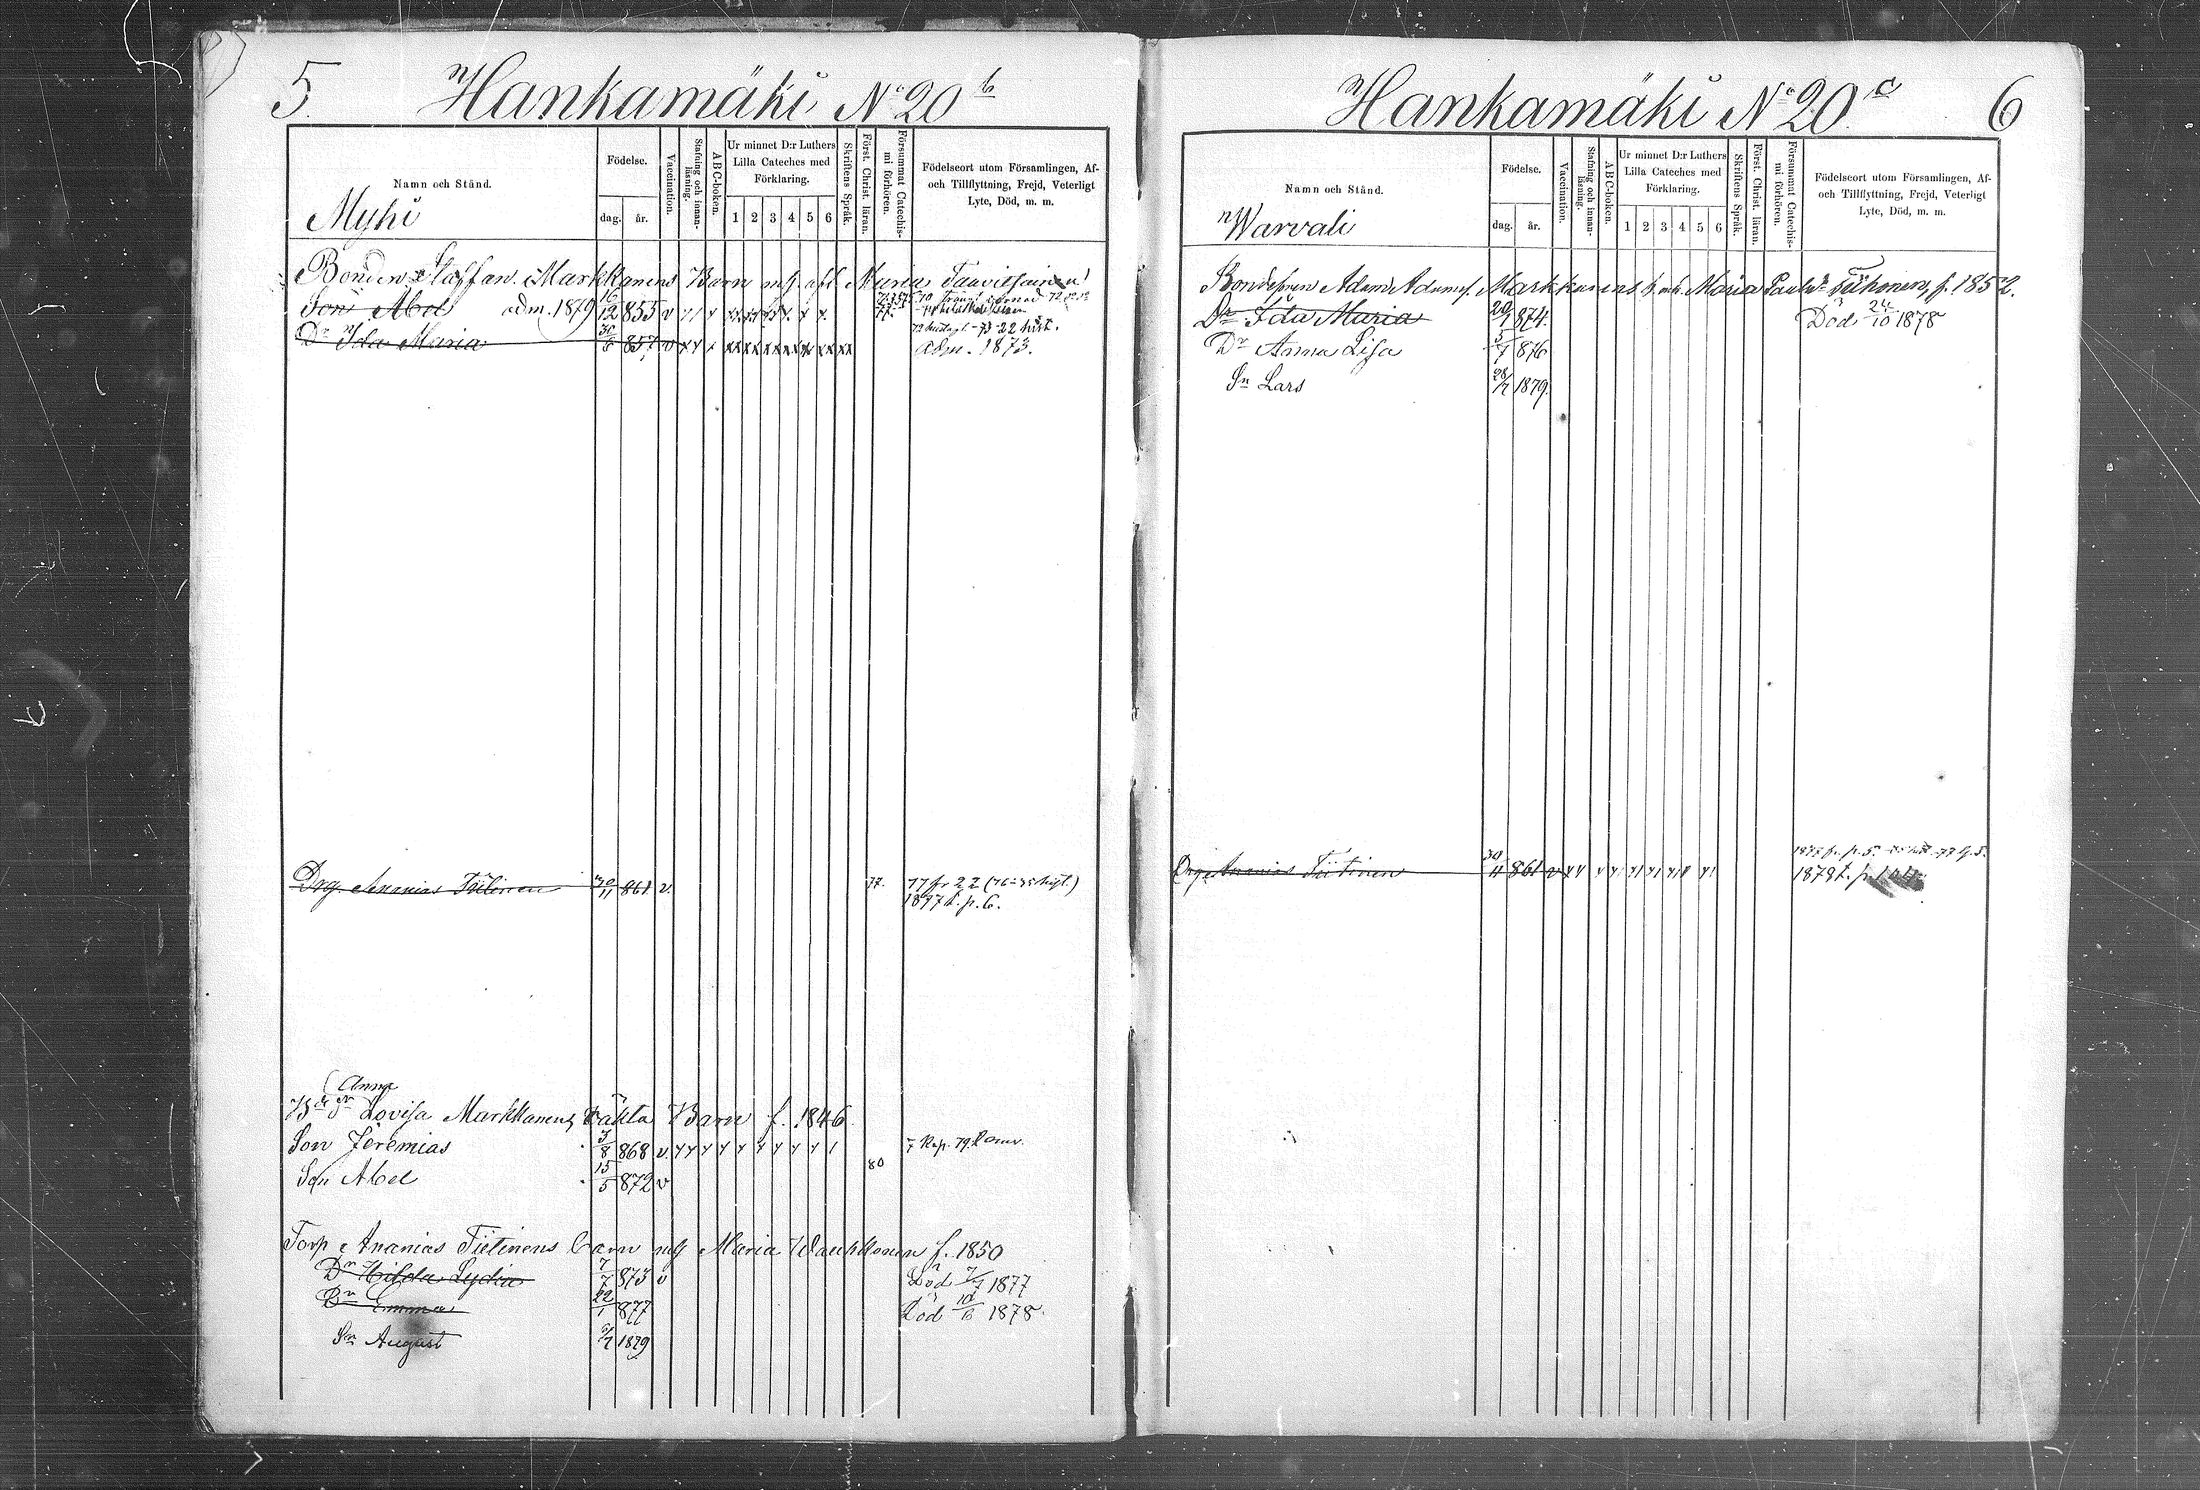 5. Hankamäki No 20 b
Namn och Stånd.
Födelse.
dag. år.
Vaccination.
Stafning och innanläsning.
ABC-boken.
Ur minnet D:r Luthers
Lilla Cateches med
Förklaring.
1 2 3 4 5 6
Skriftens Språk.
Först. Christ. läran.
Försummat Catechismi förhören.
Födelseort utom Församlingen, Af-
och Tillflyttning, Frejd, Veterligt
Lyte, Död, m. m.
Myhi
Bonden Staffan Markkanens Barn m. afl. Maria
Son Abel adm. 1879 16/12 855 v
77.
Dr Ida Maria 857 v
adm. 1873.
Drg. Ananias Tiitinen 30/11 861 v. 77. 77 fr 22
1877 t. p. 6.
Anna
Lovisa Markkanens oäkta Barn f. 1846.
Son Jeremias 3/8 868 v.
80
Son Abel 15/5 872 v
Torp Ananias Tiitinens barn m. Maria Wauhkonen f. 1850
Dr Hilda Lydia 7/7 873 v Död 7/7 1877
Dr Emma 22/1 877 Död 10/6 1878.
Sn August 6/7 1879
Hankamäki No 20 c 6
Namn och Stånd.
Födelse.
dag. år.
Vaccination.
Stafning och innanläsning.
ABC-boken.
Ur minnet D:r Luthers
Lilla Cateches med
Förklaring.
1 2 3 4 5 6
Skriftens Språk.
Först. Christ. läran.
Försummat Catechismi förhören.
Födelseort utom Församlingen, Af-
och Tillflyttning, Frejd, Veterligt
Lyte, Död, m. m.
Warvali
Bondesonen Adam Adamsf. Markkanens b. m. h. Maria Paulsdr Tiihonen, f. 1852.
Dr Ida Maria 29/1 874. Död 24/10 1878
Dr Anna Lisa 876
Sn Lars 28/7 1879.
Drg. Ananias Tiitinen 30/11 861 v 1877 fr. p. 5.
1879 t. p.